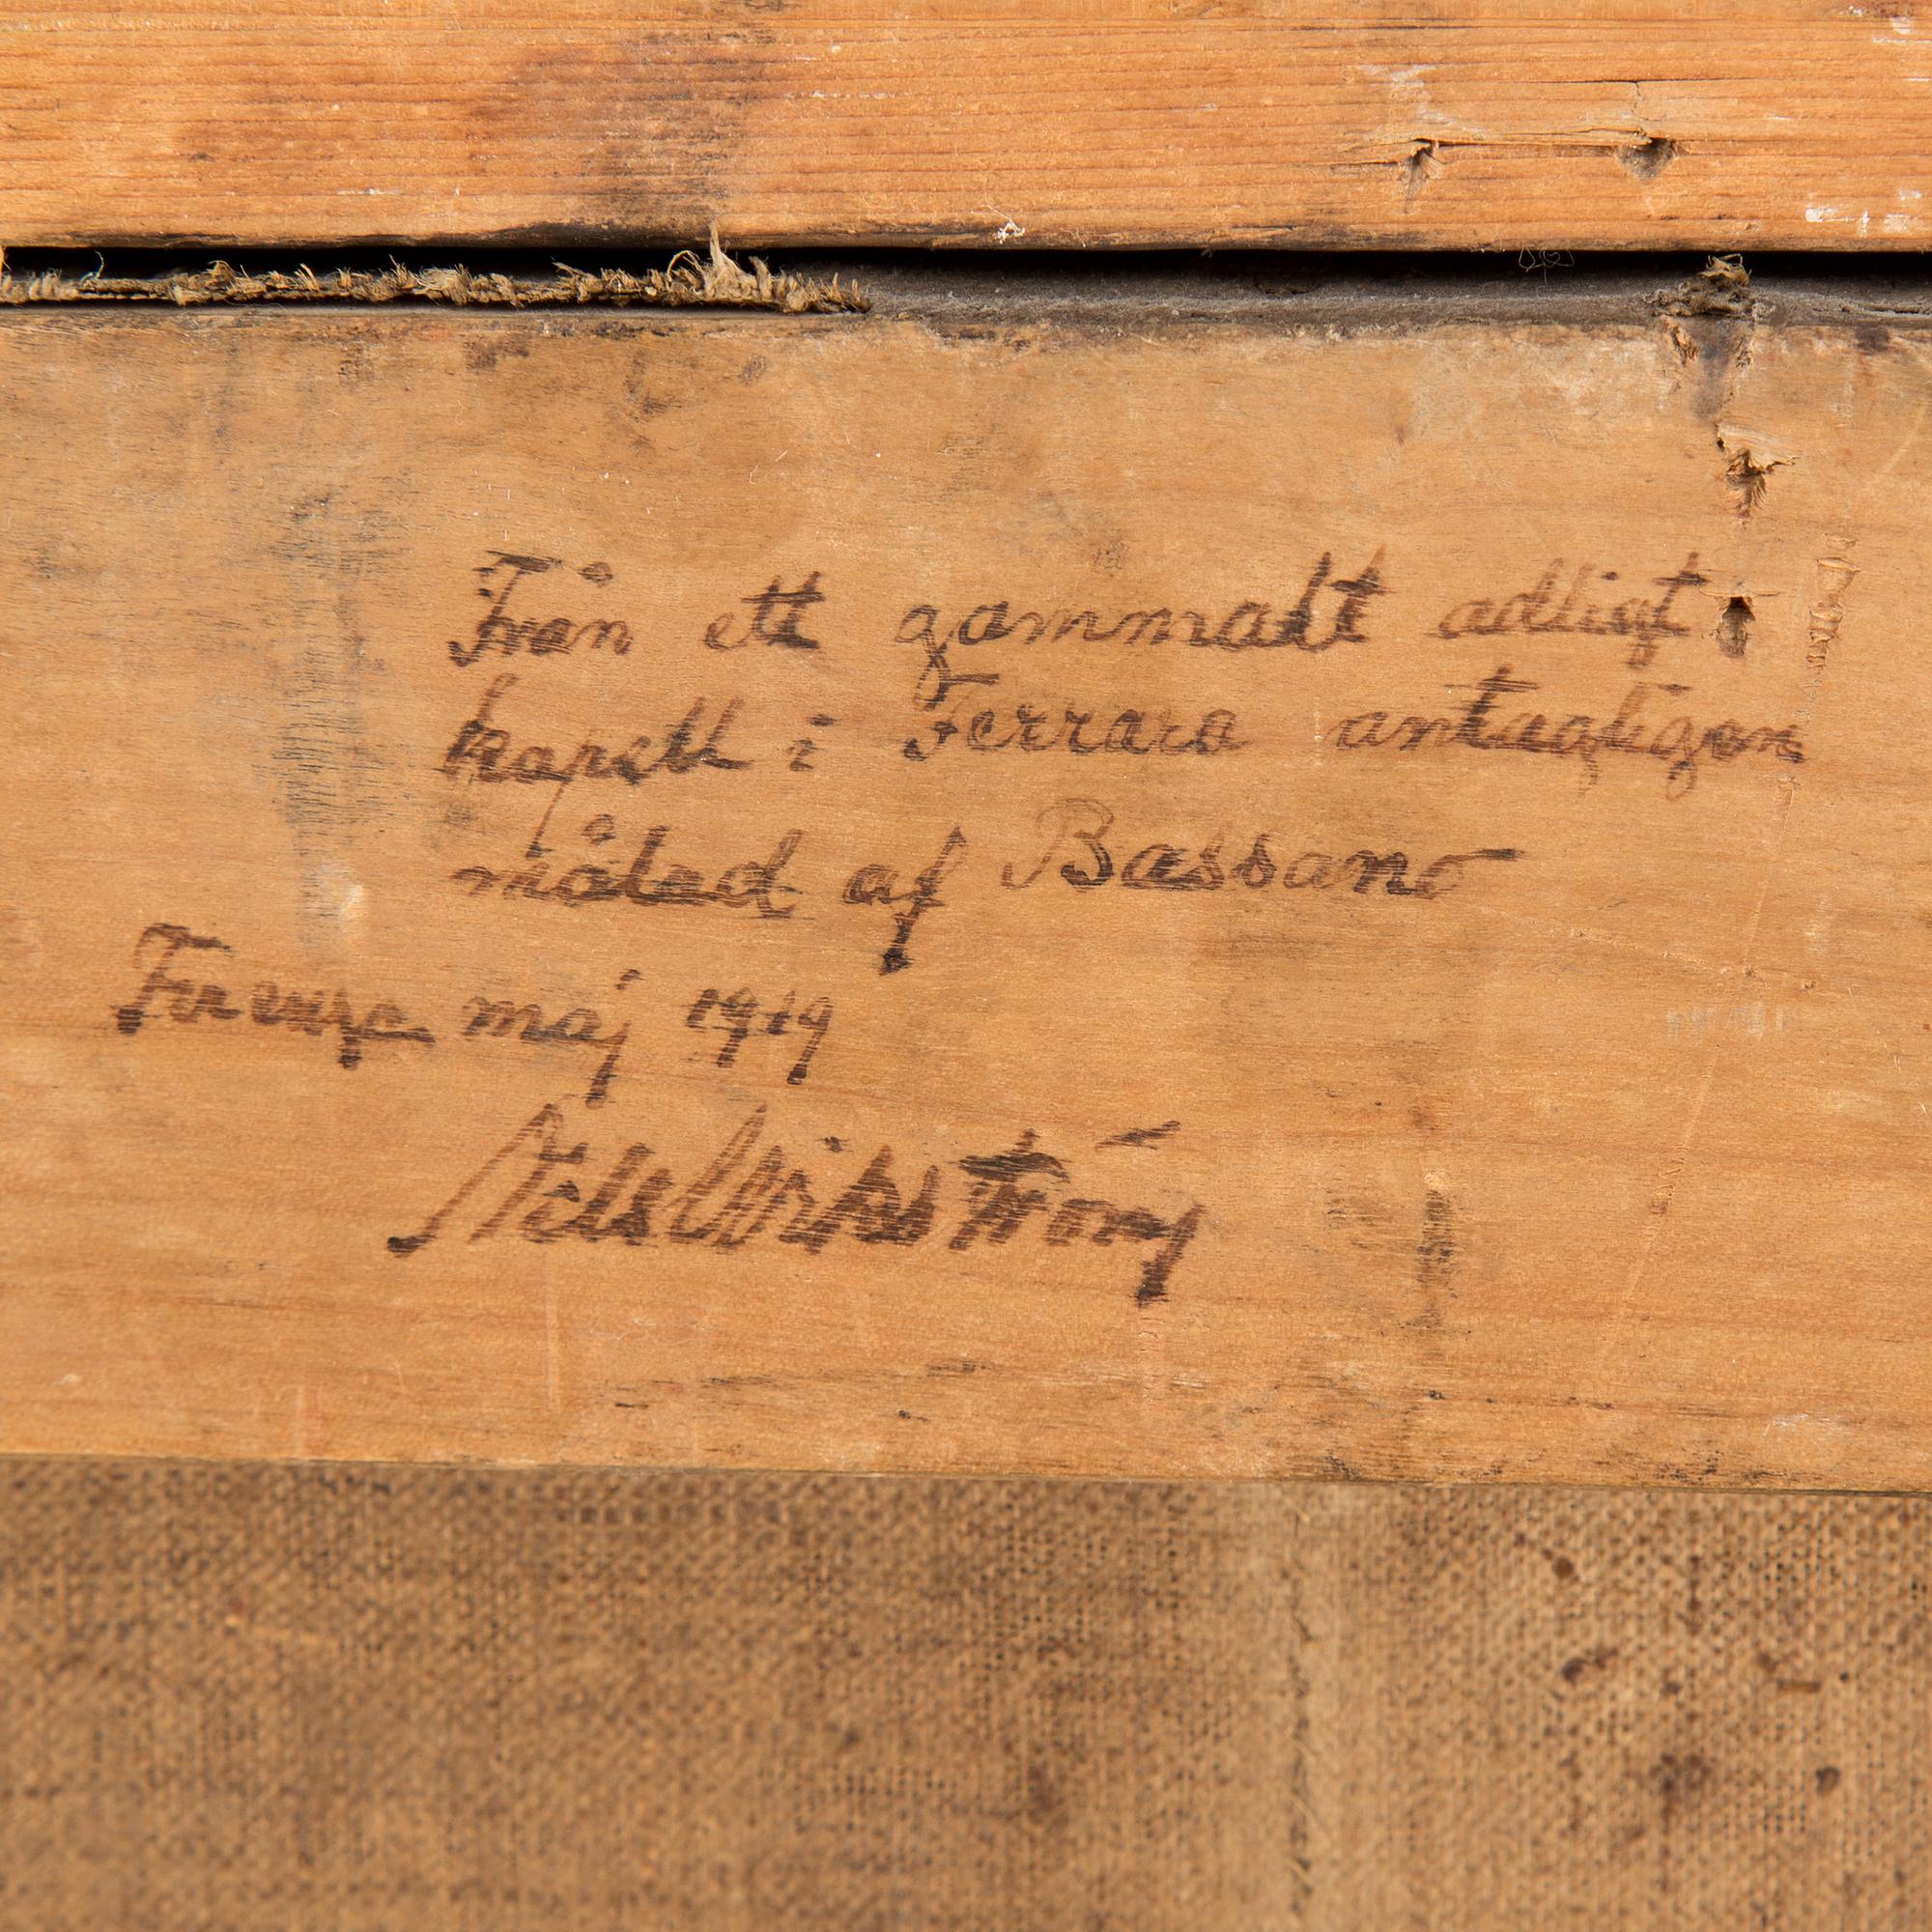 Från ett gammalt adligt
kapell i Ferrara antagligen
målad af Bassano
Firenze maj 1919
Nils Wikström